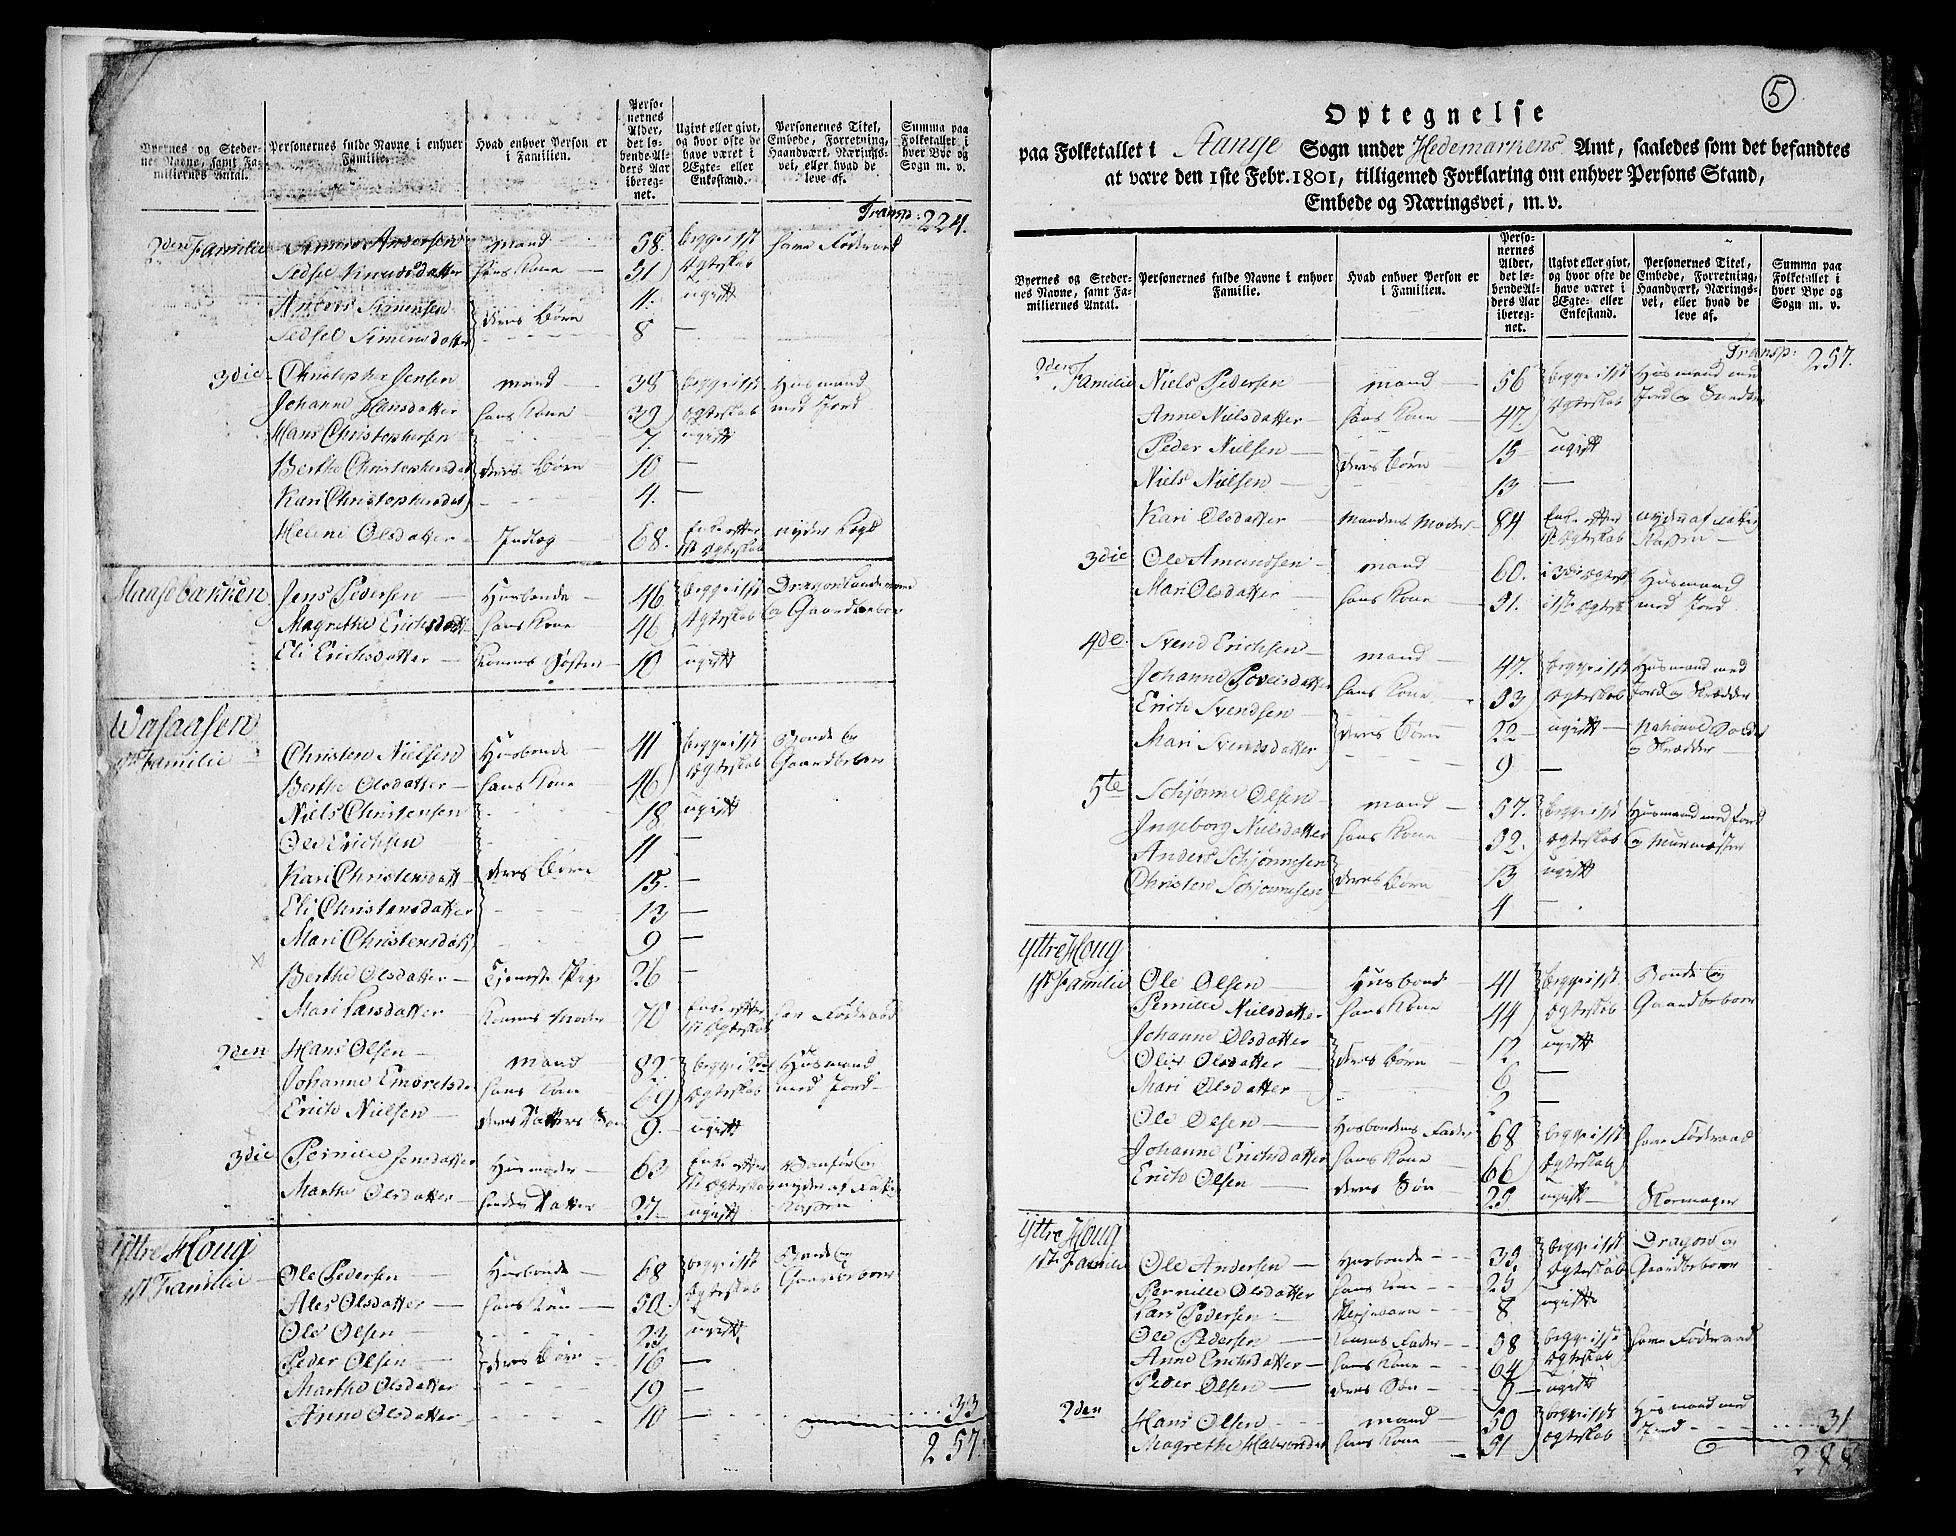 Byernes og Stedernes Navne, samt Familiernes Antal.
Personernes fulde Navne i enhver Familie.
Hvad enhver Person er i Familien.
Personernes Alder, det løbende Alders Aar iberegnet.
Ugivt eller givt, og hvor ofte de have været i Ægte- eller Enkestand.
Personernes Titel, Embede, Forretning, Haandværk, Næringsvei, eller hvad de leve af.
Summa paa Folketallet i hver Bye og Sogn m. v.
Transp: 224.
2den Familie Simen Andersen mand 58. begge i 1ste har Føderaad
Sedsel Knudsdatter hans Kone 51 Ægteskab
Anders Simensen 11. ugivt
deres Børn
Sedsel Simensdatter 8 —
3die Christopher Jensen mand 38 begge i 1ste Husmand
Johanne Hansdatter hans Kone 39 Ægteskab med Jord
Hans Christophersen 7 ugivt
Berthe Christophersdat deres Børn 10 —
Kari Christophersdat 4. —
Heleni Olsdatter Indlæg 68. Enke efter nyder Lægd
1st Ægteskab
Haasebakken Jens Pedersen Husbonde 46 begge i 1st Dragon
Magrethe Erichsdatt hans Kone 46 Ægteskab og Gaardbeboer
Eli Erichsdatter Konens Søster 10 ugivt
Wasaasen
1st Familie Christen Nielsen Husbonde 41 begge i 1st Bonde og
Berthe Olsdatter hans Kone 46 Ægteskab Gaardbeboer
Niels Christensen 18 ugivt
Ole Erichsen 11 —
Kari Christensdatt deres Børn 15 —
Eli Christensdatter 13 —
Mari Christensdatt 9 —
Berthe Olsdatter Tjeneste Pige 26 —
Mari Larsdatter Konens Moder 70 Enke efter har Føderaad
1st Ægteskab
2den Hans Olsen mand 82. begge i Husmand
Johanne Embretsda hans Kone 69 Ægteskab med Jord
Erich Nielsen deres Datters Søn 9. ugivt
3die Pernille Jensdatter Husmoder 63 Enke efter Vanfør og
1st Ægteskab nyder af Fattig
Marthe Olsdatter hendes Datter 27. ugivt Kassen
Yttre Houg
1st Familie Ole Pedersen Husbonde 68 begge i 1st Bonde og
Ales Olsdatter hans Kone 50. Ægteskab Gaardbeboer
Ole Olsen 23 ugivt
Peder Olsen deres Børn 16 —
Marthe Olsdatter 19 —
Anne Olsdatter 10 — 33
257.
5
Optegnelse
paa Folketallet i Stange Sogn under Hedemarkens Amt, saaledes som det befandtes
at være den 1ste Febr. 1801, tilligemed Forklaring om enhver Persons Stand,
Embede og Næringsvei, m. v.
Byernes og Stedernes Navne, samt Familiernes Antal.
Personernes fulde Navne i enhver Familie.
Hvad enhver Person er i Familien.
Personernes Alder, det løbende Alders Aar iberegnet.
Ugivt eller givt, og hvor ofte de have været i Ægte- eller Enkestand.
Personernes Titel, Embede, Forretning, Haandværk, Næringsvei, eller hvad de leve af.
Summa paa Folketallet i hver Bye og Sogn m. v.
Transp: 257.
2den Familie Niels Pedersen mand 56 begge i 1st Husmand med
Anne Nielsdatter hans Kone 47 Ægteskab Jord og
Peder Nielsen 15 ugivt
deres Børn
Niels Nielsen 13 —
Kari Olsdatter Mandens Moder 84. Enke efter nyder af Fattig
1st Ægteskab Kassen
3die Ole Amundsen mand 60. i 3die Ægtesk Husmand
Mari Olsdatter hans Kone 51. i 1ste Ægtesk med Jord
4de Svend Erichsen mand 47. begge i 1st Husmand med
Johanne Povelsdatter hans Kone 53 Ægteskab Jord og Skrædder
Erich Svendsen 22 ugivt National Soldat
deres Børn og Skrædder
Mari Svendsdatter 9 —
5te Schjønne Olsen mand 57. begge i 1st Husmand med Jord
Ingeborg Nielsdatter hans Kone 52. Ægteskab og Murmester
Anders Schjønnesen 13 ugivt
Christen Schjønnesen deres Børn 4 —
Yttre Houg
1st Familie Ole Olsen Husbonde 41 begge i 1st Bonde og
Pernille Nielsdatter hans Kone 44 Ægteskab Gaardbeboer
Johanne Olsdatter 12 ugivt
Olis Olsdatter deres Børn 6 —
Mari Olsdatter 2 —
Ole Olsen Husbondens Fader 68 begge i 1st have Føderaad
Johanne Erichsdatter hans Kone 66 Ægteskab
Erich Olsen deres Søn 25 ugivt Skomager
Yttre Houg
1st Familie Ole Andersen Husbonde 35. begge i 1st Dragon og
Pernille Olsdatter hans Kone 25 Ægteskab Gaardbeboer
Lars Pedersen 8 ugivt
Ole Pedersen Konens Fader 58 begge i 1st have Føderaad
Anne Erichsdatter hans Kone 64 Ægteskab
Peder Olsen deres Søn 9 ugivt
2den Hans Olsen mand 50 begge i 1st Husmand med 31
Magrethe Halvorsdat hans Kone 51 Ægteskab Jord
288